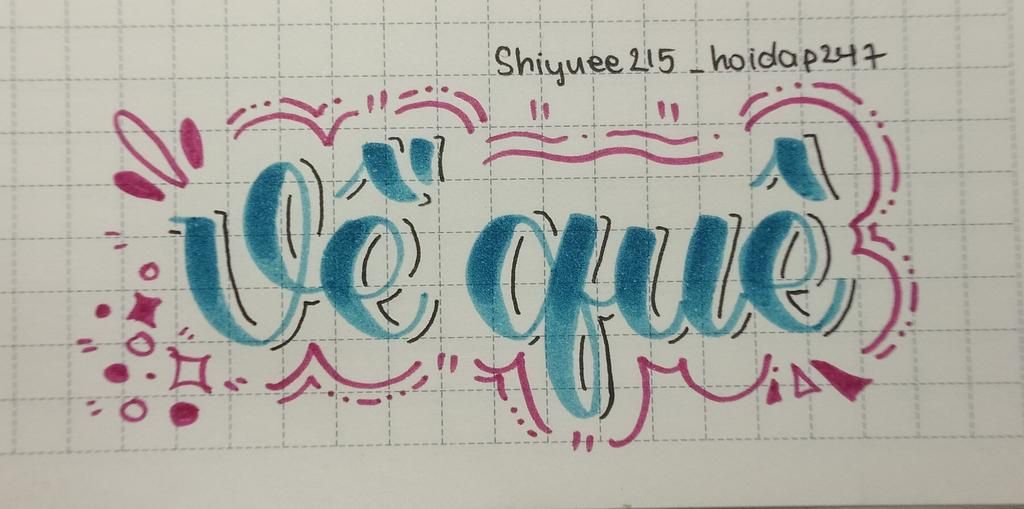 Shiyuee215_hoidap247
Về quê